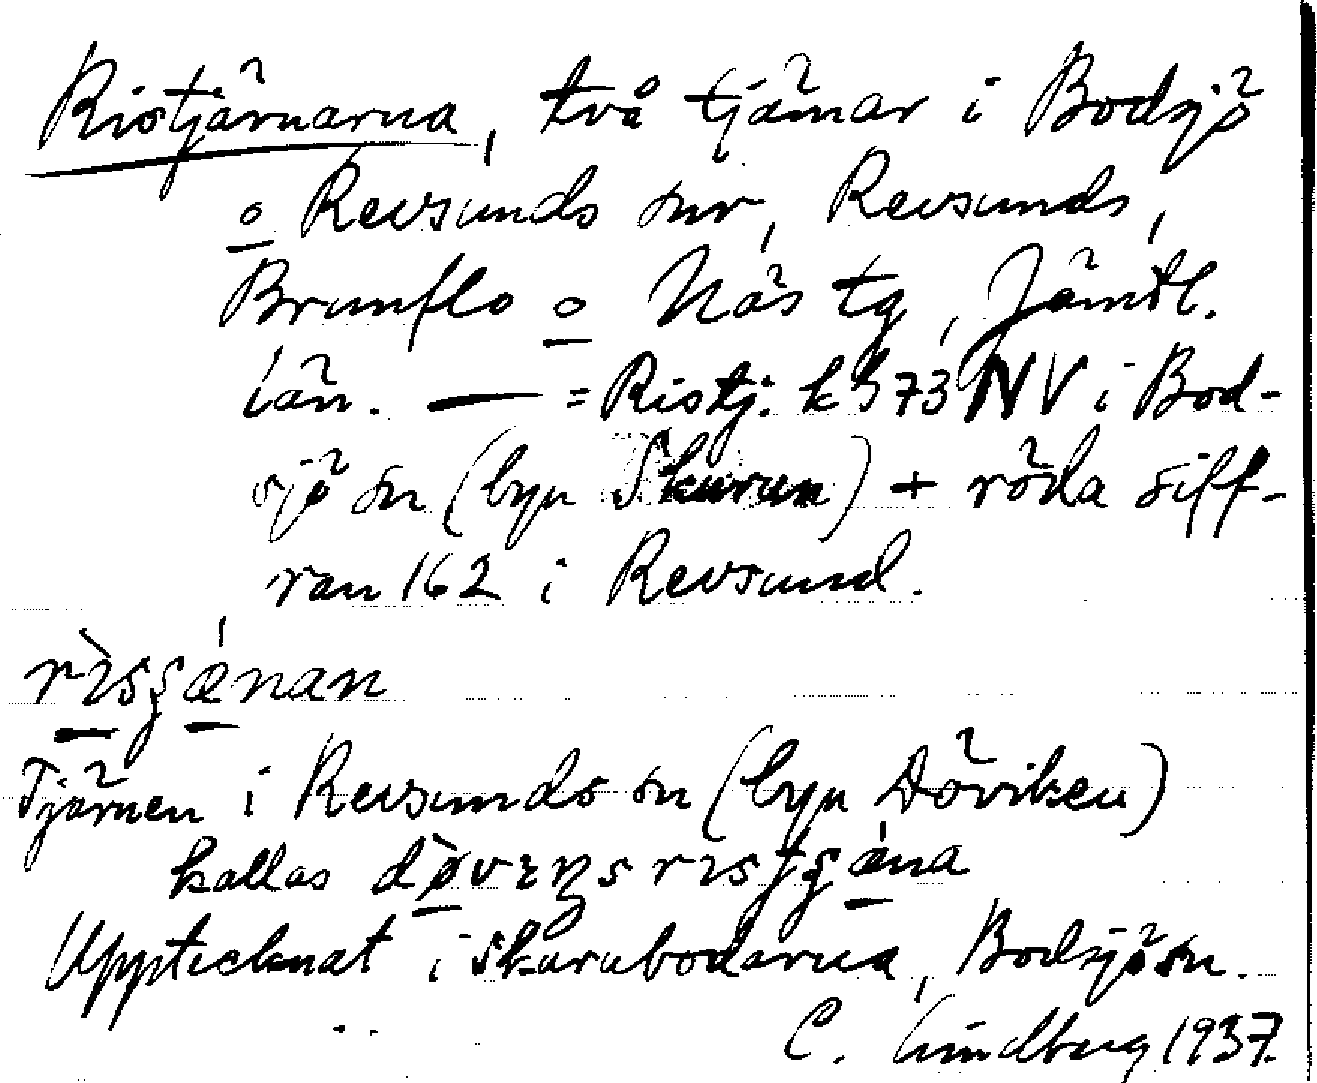 Ristjärnarna, två tjärnar i Bodsjö
o Revsunds snr, Revsunds,
Brunflo o Näs tg, Jämtl.
län. — = Ristj. k 573 NV i Bod-
sjö sn (byn Skurun) + röda siff-
ran 162 i Revsund.
Tjärnen i Revsunds sn (byn Döviken)
kallas
Upptecknat i Skurubodarna, Bodsjö sn.
C. Lindberg 1937.